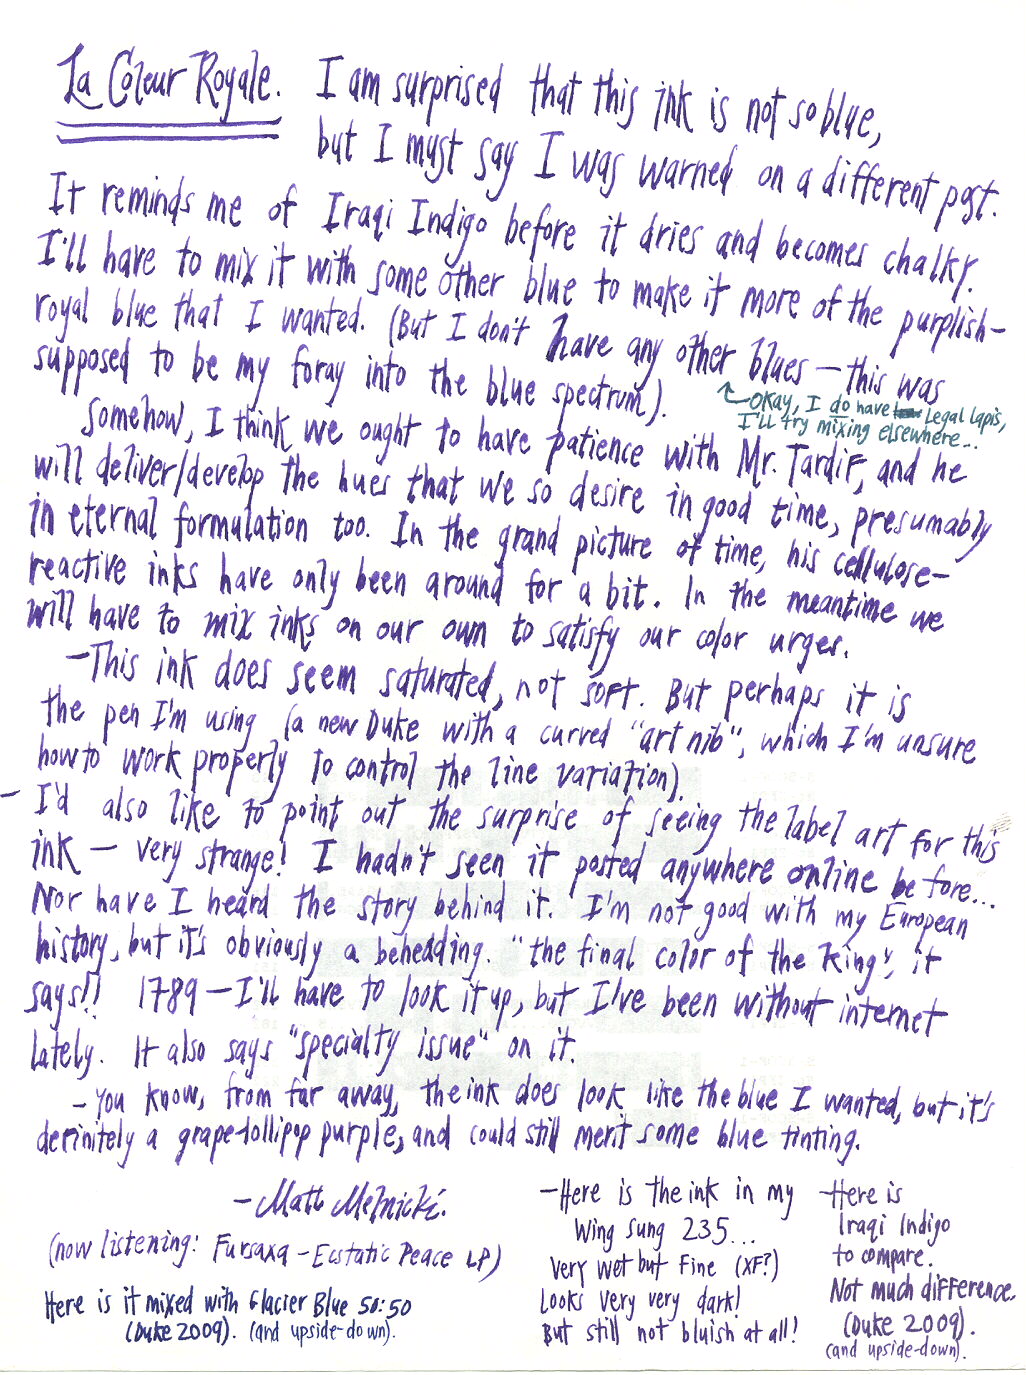 La Coleur Royale. I am surprised that this ink is not so blue,
but I must say I was warned on a different post.
It reminds me of Iraqi Indigo before it dries and becomes chalky.
I'll have to mix it with some other blue to make it more of the purplish-
royal blue that I wanted. (But I don't have any other blues — this was
supposed to be my foray into the blue spectrum).
Okay, I do have Legal Lapis,
I'll try mixing elsewhere...
Somehow, I think we ought to have patience with Mr. Tardif, and he
will deliver/develop the hues that we so desire in good time, presumably
in eternal formulation too. In the grand picture of time, his cellulose-
reactive inks have only been around for a bit. In the meantime we
will have to mix inks on our own to satisfy our color urges.
—This ink does seem saturated, not soft. But perhaps it is
the pen I'm using (a new Duke with a curved "art nib", which I'm unsure
how to work properly to control the line variation).
— I'd also like to point out the surprise of seeing the label art for this
ink — very strange! I hadn't seen it posted anywhere online before...
Nor have I heard the story behind it. I'm not good with my European
history, but it's obviously a beheading. "the final color of the King", it
says!! 1789 — I'll have to look it up, but I've been without internet
lately. It also says "specialty issue" on it.
— You know, from far away, the ink does look like the blue I wanted, but it's
definitely a grape-lollipop purple, and could still merit some blue tinting.
— Matt Melnicki.
(now listening: Fursaxa — Ecstatic Peace LP)
Here is it mixed with Glacier Blue 50:50
(Duke 2009). (and upside-down).
—Here is the ink in my
Wing Sung 235...
Very wet but Fine (XF?)
Looks very very dark!
But still not bluish at all!
—Here is
Iraqi Indigo
to compare.
Not much difference.
(Duke 2009).
(and upside-down).